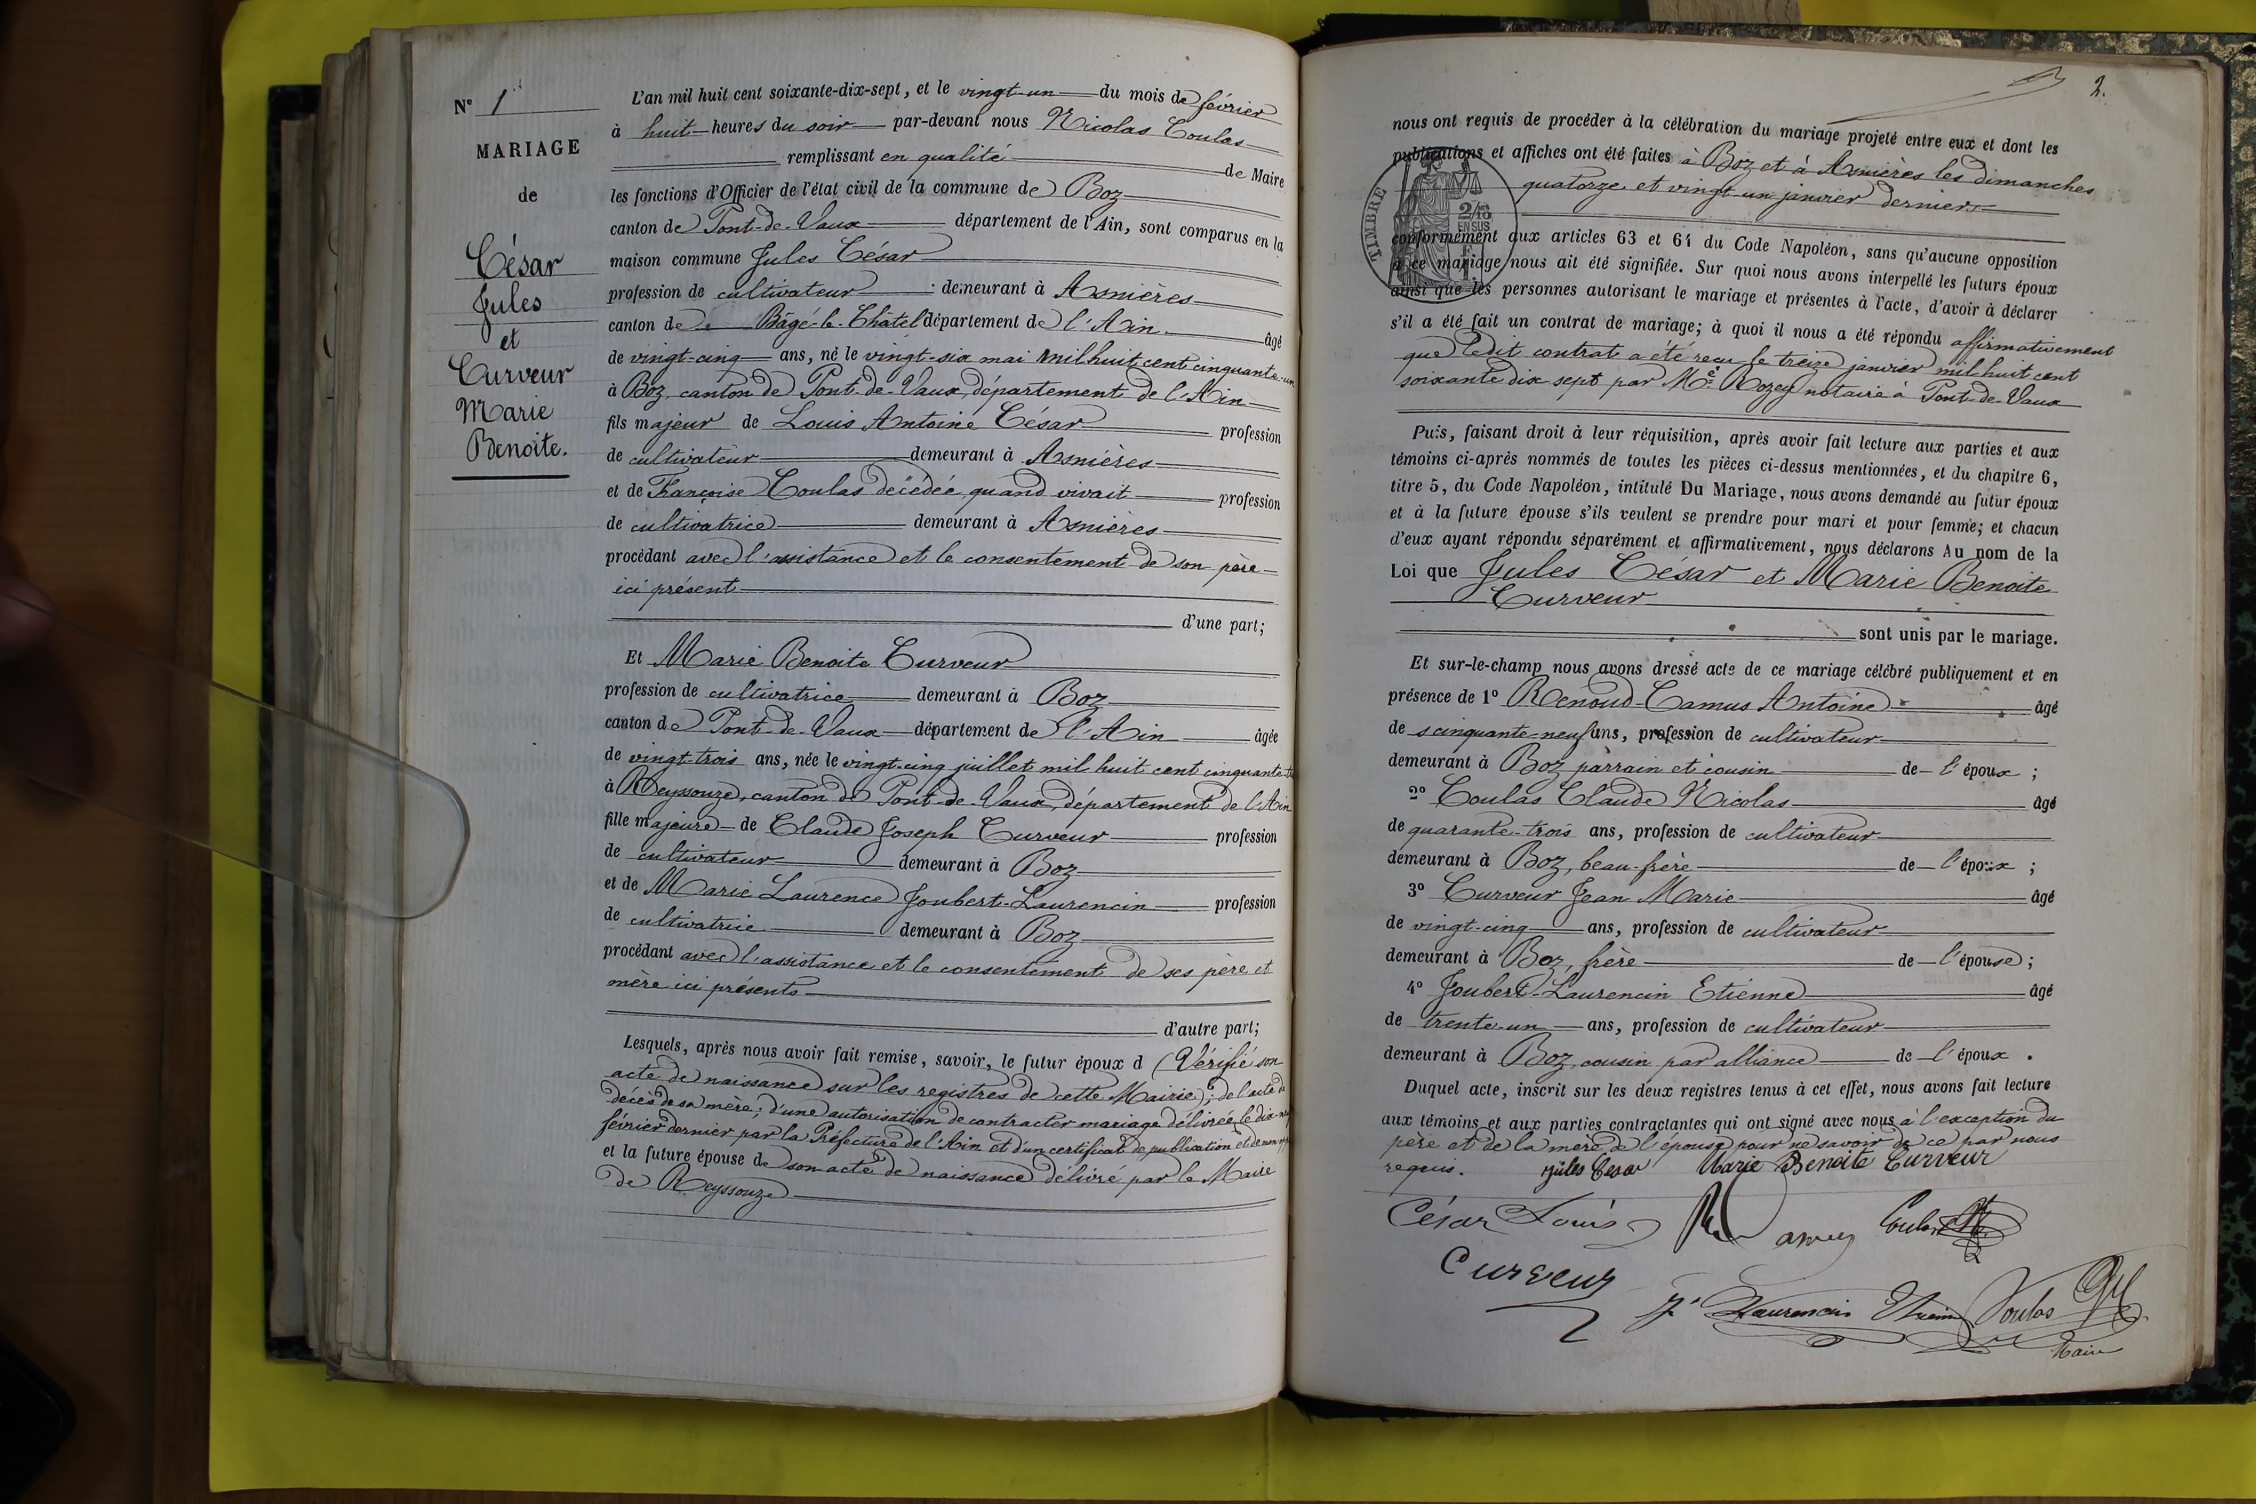 N° 1
MARIAGE
de
César
Jules
et
Curveur
Marie
Benoite.
L'an mil huit cent soixante-dix-sept, et le vingt-un du mois de février
à huit heures du soir par-devant nous Nicolas Coulas
remplissant en qualité de Maire
les fonctions d'Officier de l'état civil de la commune de Boz
canton de Pont-de-Vaux département de l'Ain, sont comparus en la
maison commune Jules César
profession de cultivateur demeurant à Asnières
canton de Bâgé-le-Châtel département de l'Ain âgé
de vingt-cinq ans, né le vingt-six mai mil huit cent cinquante-un
à Boz, canton de Pont-de-Vaux, département de l'Ain
fils majeur de Louis Antoine César profession
de cultivateur demeurant à Asnières
et de Françoise Coulas décédée, quand vivait profession
de cultivatrice demeurant à Asnières
procédant avec l'assistance et le consentement de son père
ici présent
d'une part;
Et Marie Benoite Curveur
profession de cultivatrice demeurant à Boz
canton de Pont-de-Vaux département de l'Ain âgée
de vingt-trois ans, née le vingt-cinq juillet mil huit cent cinquante-
à Reyssouze, canton de Pont-de-Vaux, département de l'Ain
fille majeure de Claude Joseph Curveur profession
de cultivateur demeurant à Boz
et de Marie Laurence Joubert-Laurencin profession
de cultivatrice demeurant à Boz
procédant avec l'assistance et le consentement de ses père et
mère ici présents
d'autre part;
Lesquels, après nous avoir fait remise, savoir, le futur époux d (Vérifié son
acte de naissance sur les registres de cette Mairie); de l'acte de
décès de sa mère; d'une autorisation de contracter mariage délivrée le dix-
février dernier par la Préfecture de l'Ain et d'un certificat de publication et de non
et la future épouse de son acte de naissance délivré par le Maire
de Reyssouze
2.
nous ont requis de procéder à la célébration du mariage projeté entre eux et dont les
publications et affiches ont été faites à Boz et à Asnières les dimanches
quatorze et vingt-un janvier derniers
TIMBRE
2/10
EN SUS
conformément aux articles 63 et 64 du Code Napoléon, sans qu'aucune opposition
à ce mariage nous ait été signifiée. Sur quoi nous avons interpellé les futurs époux
ainsi que les personnes autorisant le mariage et présentes à l'acte, d'avoir à déclarer
s'il a été fait un contrat de mariage; à quoi il nous a été répondu affirmativement
que ledit contrat a été reçu le treize janvier mil huit cent
soixante dix sept par Me Rozey notaire à Pont-de-Vaux
Puis, faisant droit à leur réquisition, après avoir fait lecture aux parties et aux
témoins ci-après nommés de toutes les pièces ci-dessus mentionnées, et du chapitre 6,
titre 5, du Code Napoléon, intitulé Du Mariage, nous avons demandé au futur époux
et à la future épouse s'ils veulent se prendre pour mari et pour femme; et chacun
d'eux ayant répondu séparément et affirmativement, nous déclarons Au nom de la
Loi que Jules César et Marie Benoite
Curveur
sont unis par le mariage.
Et sur-le-champ nous avons dressé acte de ce mariage célébré publiquement et en
présence de 1° Renoud-Camus Antoine âgé
de cinquante-neuf ans, profession de cultivateur
demeurant à Boz parrain et cousin de l'époux ;
2° Coulas Claude Nicolas âgé
de quarante-trois ans, profession de cultivateur
demeurant à Boz, beau-frère de l'époux ;
3° Curveur Jean Marie âgé
de vingt-cinq ans, profession de cultivateur
demeurant à Boz, frère de l'épouse ;
4° Joubert-Laurencin Etienne âgé
de trente-un ans, profession de cultivateur
demeurant à Boz, cousin par alliance de l'époux .
Duquel acte, inscrit sur les deux registres tenus à cet effet, nous avons fait lecture
aux témoins et aux parties contractantes qui ont signé avec nous à l'exception du
père et de la mère de l'épouse pour ne savoir de ce par nous
requis. Jules Cesar Marie Benoite Curveur
César Louis Coulas
Curveur
Jt Laurencin Etienne Coulas
Maire